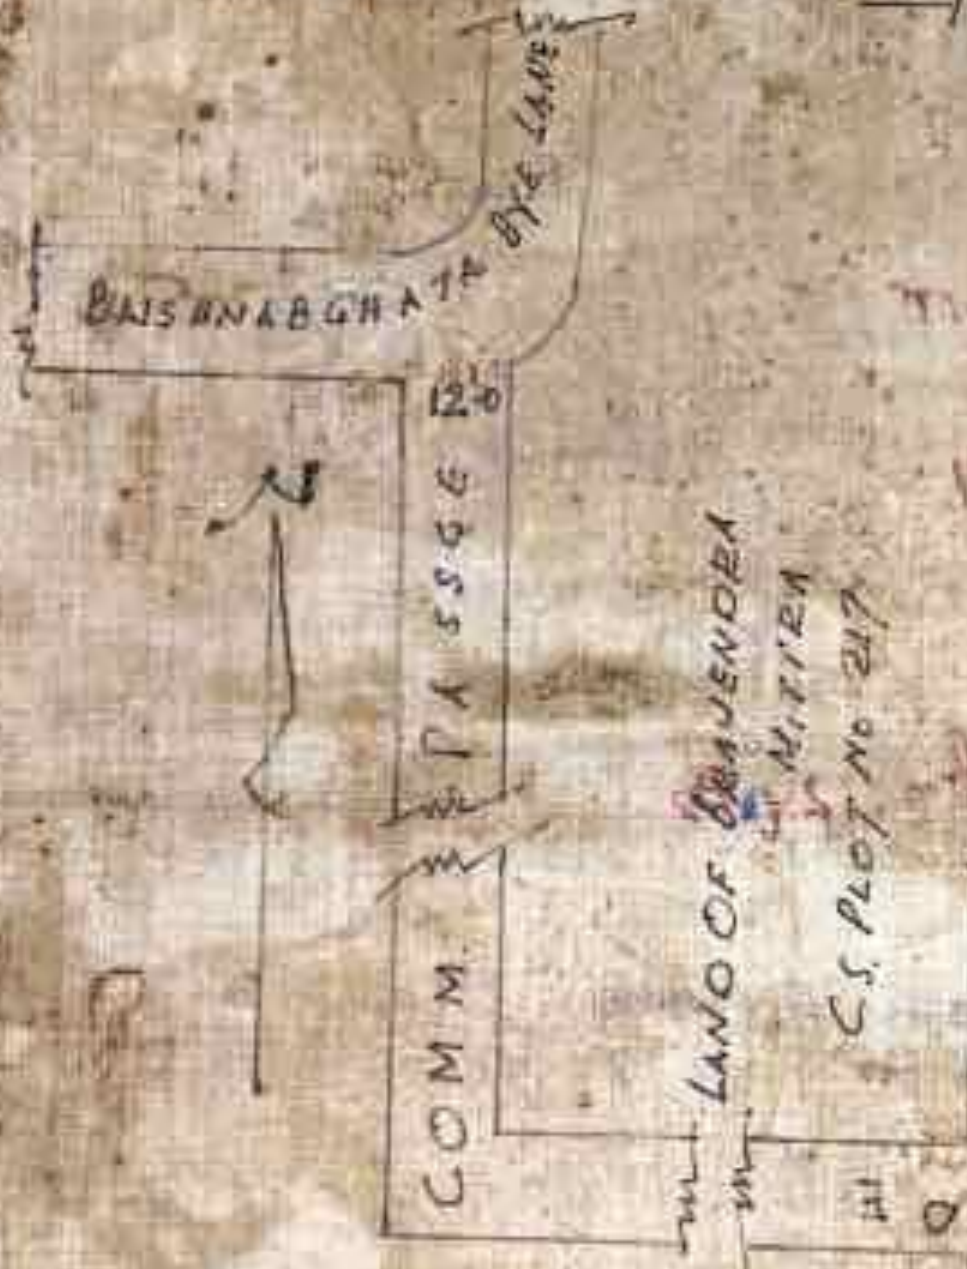 BAISANABGHATA BYE LANE
12'-0
COMM. PASSGE
LAND OF
MITTRA
C.S. PLOT NO 217